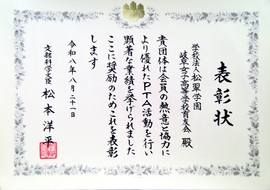 表彰状
学校法人松翠学園
岐阜女子高等学校育友会 殿
貴団体は会員の熱意と協力に
より優れたPTA活動を行い
顕著な業績を挙げられました
ここに奨励のためこれを表彰
します
令和八年八月二十一日
文部科学大臣 松本洋平